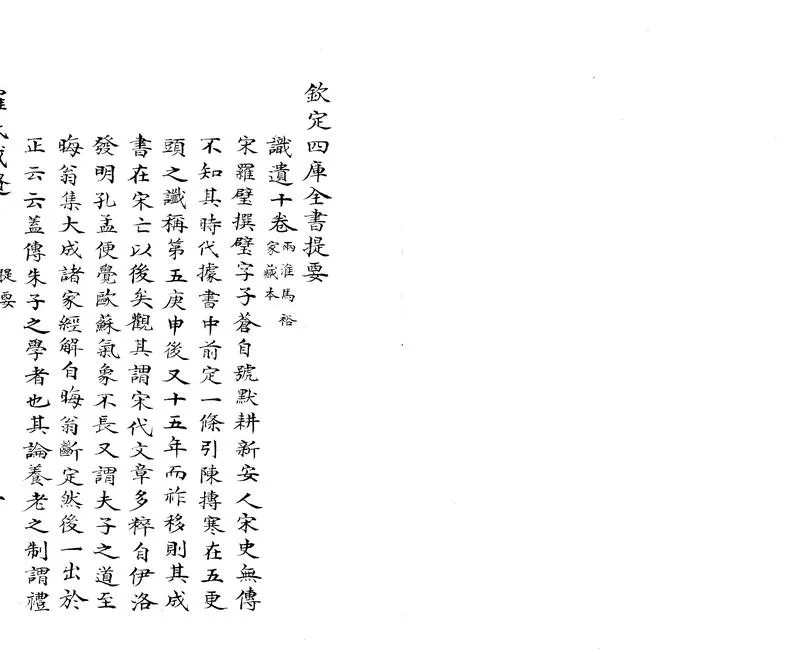 欽定四庫全書提要
識遺十卷兩淮馬裕家藏本
宋羅璧撰璧字子蒼自號默耕新安人宋史無傳
不知其時代據書中前定一條引陳摶寒在五更
頭之讖稱第五庚申後又十五年而祚移則其成
書在宋亡以後矣觀其謂宋代文章多粹自伊洛
發明孔孟便覺歐蘇氣象不長又謂夫子之道至
晦翁集大成諸家經解自晦翁斷定然後一出於
正云云蓋傳朱子之學者也其論養老之制謂禮
提要